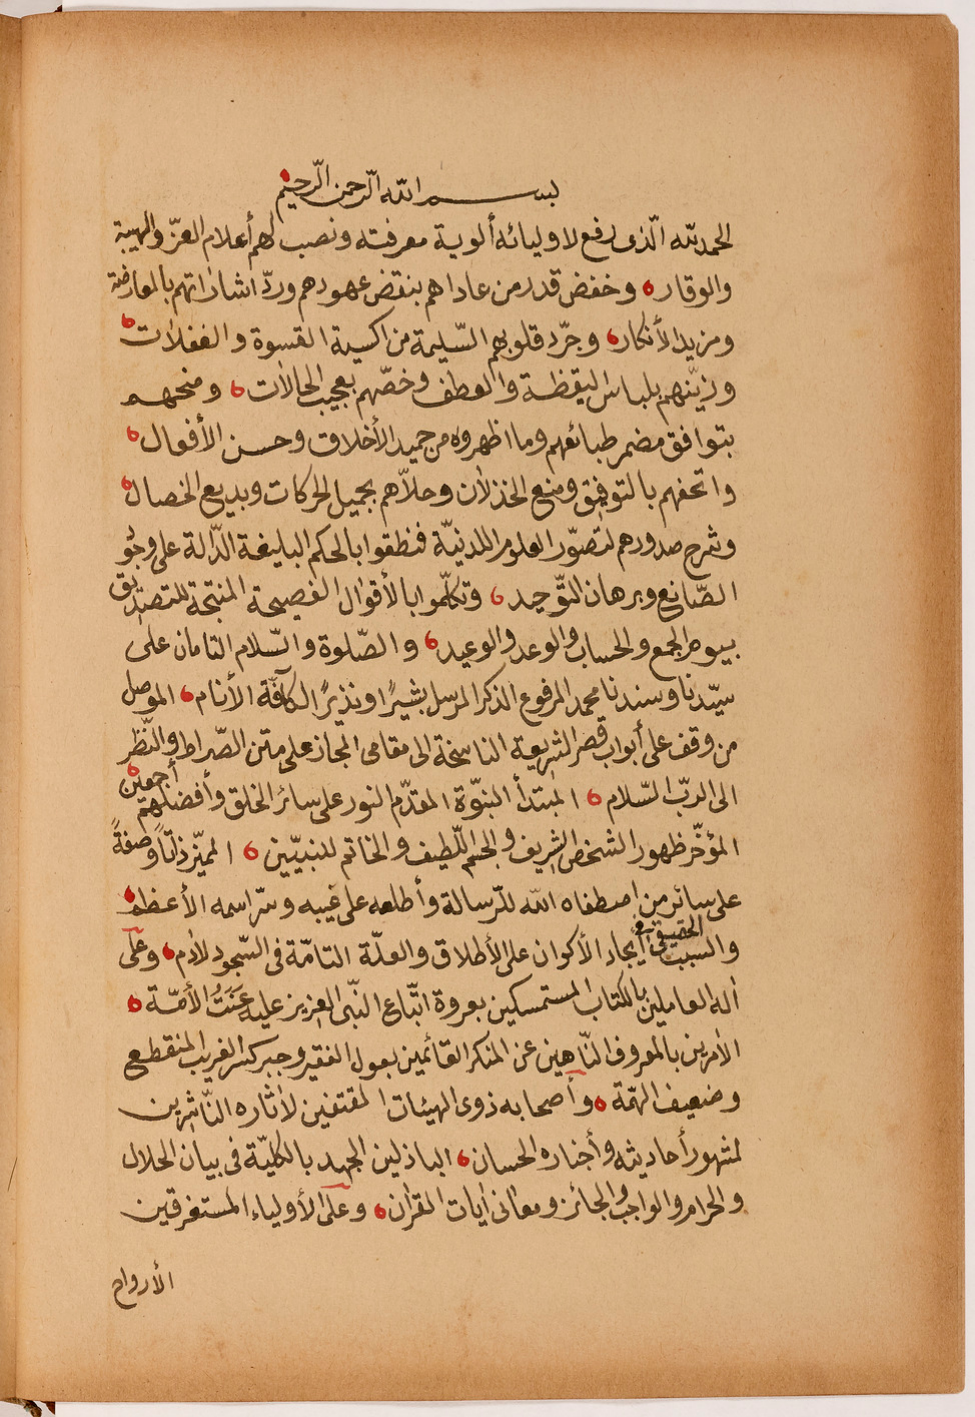 بسم الله الرّحمن الرّحيم
الحمد لله الّذى رفع لاوليائه ألوية معرفته ونصب لهم أعلام العزّ والهيبة
والوقار ، وخفض قدر من عاداهم بنقض عهودهم وردّ اشاراتهم بالمعارضة
ومزيد الأنكار ، وجرّد قلوبهم السّليمة من اكسية القسوة والغفلات ،
وزيّنهم بلباس اليقظة والعطف وخصّهم بعجيب الحالات ، ومنحهم
بتوافق مضمر طبائعهم وما اظهروه من حميد الأخلاق وحسن الأفعال ،
واتحفهم بالتوفيق ومنع الخذلان وحلاّهم بجميل الحركات وبديع الخصال ،
وشرح صدورهم لتصوّر العلوم اللدنيّة فنطقوا بالحكم البليغة الدّالة على وجو
الصّانع وبرهان التوّحيد ، وتكلّموا بالأقوال الفصيحة المنتجة للتصديق
بيوم الجمع والحساب والوعد والوعيد ، والصّلوة والسّلام التامان على
سيّدنا وسندنا محمد المرفوع الذكر المرسل بشيرًا ونذيرًا لكآفّة الأنام ، الموصل
من وقف على أبواب قصر الشريعة الناسخة الى مقامى المجاز على متن الصّراط والنّظر
الى الربّ السّلام ، المبتدأ النبوّة المقدّم النور على سائر الخلق وأفضلهم أجمعين ،
المؤخّر ظهور الشخص الشريف والجسم اللّطيف والخاتم للنبيّين ، المميّز ذاتًا وصفةً
على سائر من اصطفاه الله للرّسالة وأطلعه على غيبه وسرّ اسمه الأعظم ،
والسبب الحقيقى فى ايجاد الأكوان على الأطلاق والعلّة التامّة فى السّجود لأدم ، وعلى
أله العاملين بالكتاب المستمسكين بعروة اتّباع النّبى العزيز عليه عَنَتُ الأمّة ،
الأمرين بالمعروف النّاهين عن المنكر القائمين بعول الفقير وجبر كسر الغريب المنقطع
وضعيف الهمّة ، وأصحابه ذوى الهيئات المقتفين لأثاره النّاشرين
لمشهور أحاديثه وأخباره الحسان ، الباذلين الجهد بالكليّة فى بيان الحلال
والحرام والواجب والجائز ومعانى أيات القرأن ، وعلى الأولياء المستغرقين
الأرواح